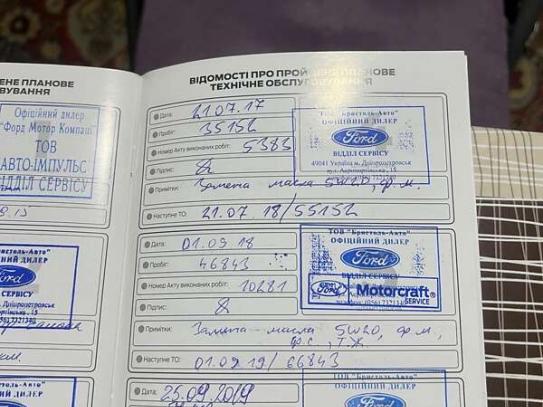 ЕНЕ ПЛАНОВЕ
ВУВАННЯ
Офіційний дилер
"Форд Мотор Компані"
ТОВ
АВТО-ІМПУЛЬС
ВІДДІЛ СЕРВІСУ
Ford
СЕРВІСУ
ВІДОМОСТІ ПРО ПРОЙДЕНЕ ПЛАНОВЕ
ТЕХНІЧНЕ ОБСЛУГОВУВАННЯ
Дата: 21.07.17
Пробіг: 35152
Номер Акту виконаних робіт: 5385
Підпис:
Примітки: Замена масла 5W20, ф.м.
Наступне ТО: 21.07.18/55152
ТОВ "Бристоль-Авто"
ОФІЦІЙНИЙ ДИЛЕР
Ford
ВІДДІЛ СЕРВІСУ
49041 Україна м. Дніпропетровськ
Дата: 01.09.18
Пробіг: 46843
Номер Акту виконаних робіт: 10281
Підпис:
Примітки: Замена масла 5W20, ф.м,
ф.с., Т.Ж.
Наступне ТО: 01.09.19/66843
ТОВ "Бристоль-Авто"
ОФІЦІЙНИЙ ДИЛЕР
Ford
Ford Motorcraft
SERVICE
Дата: 25.09.2019
ТОВ "Бристоль-Авто"
ОФІЦІЙНИЙ ДИЛЕР